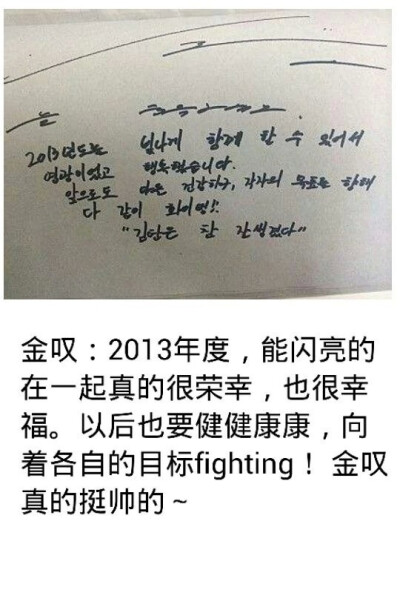 2013년도는 빛나게 함께 할 수 있어서
영광이었고 행복했습니다.
앞으로도 다들 건강하고, 각자의 목표를 향해
다 같이 화이팅!!
"김탄은 참 잘생겼다"
金叹：2013年度，能闪亮的
在一起真的很荣幸，也很幸
福。以后也要健健康康，向
着各自的目标fighting！ 金叹
真的挺帅的～